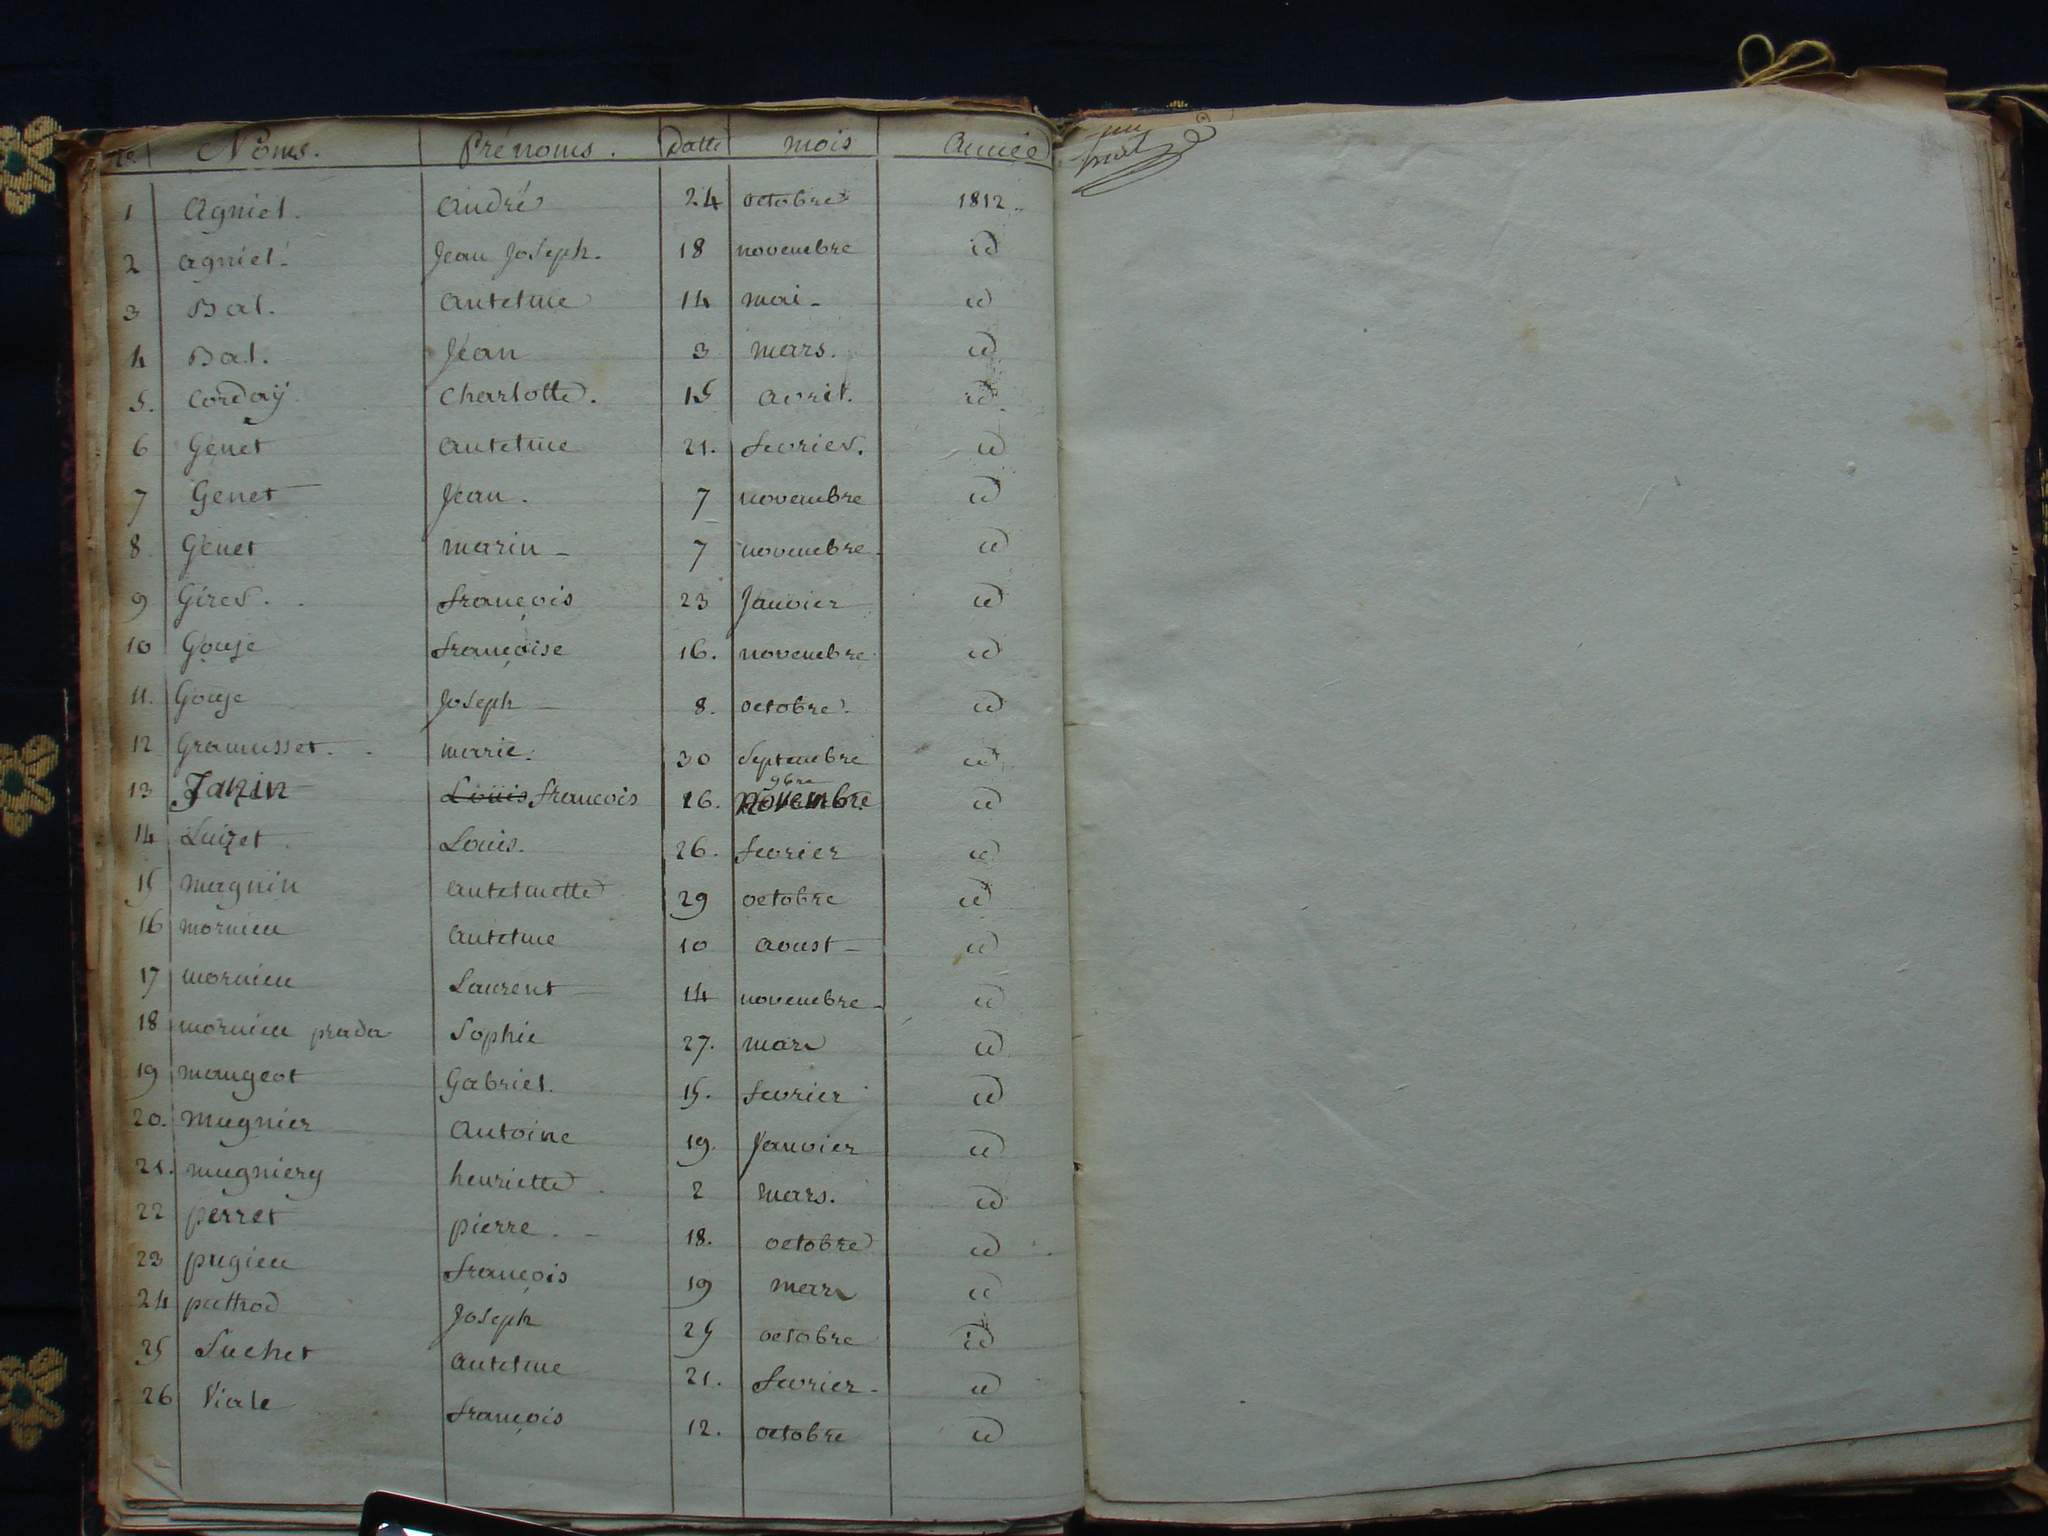 No. Noms. Prénoms. Datte mois année
1 Agniel. andré 24 octobre 1812
2 agniel. Jean Joseph. 18 novembre id
3 Bal. antelme 14 mai id
4 Bal. Jean 3 mars. id
5. Corday. Charlotte. 15 avril. id
6 Genet antelme 21. fevrier. id
7 Genet Jean. 7 novembre id
8 Genet marin 7 novembre id
9 Girer. françois 23 Janvier id
10 Gouje françoise 16. novembre id
11. Gouje Joseph 8. octobre. id
12 Gramusset. marie. 30 Septembre id
9bre
13 Janin Louis francois 26. novembre id
14 Luizet Louis. 26. fevrier id
15 magnin antelmette 29 octobre id
16 mornieu antelme 10 aoust id
17 mornieu Laurent 14 novembre id
18 mornieu prada Sophie 27. mars id
19 maugeot Gabriel. 15. fevrier id
20. mugnier antoine 19. Janvier id
21. mugniery henriette 2 mars. id
22 perret pierre. 18. octobre id
23 pugieu françois 19 mars id
24 puthod Joseph 25 octobre id
25 Suchet antelme 21. fevrier id
26 Viale françois 12. octobre id